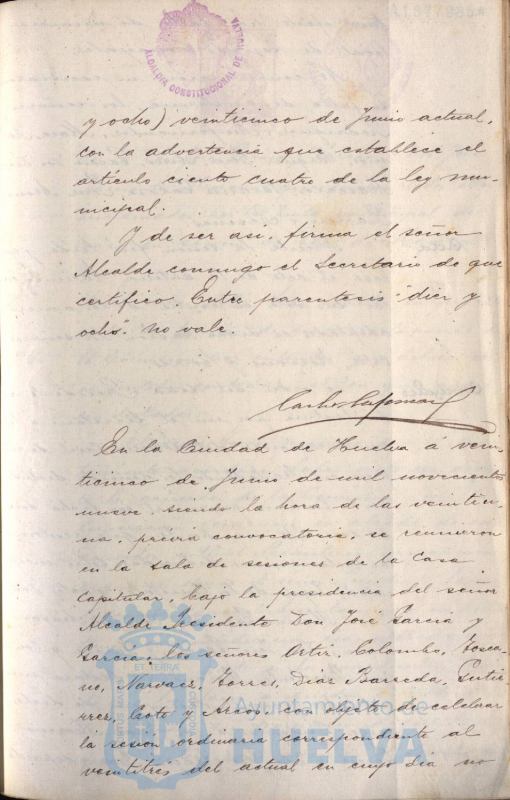 ALCALDIA CONSTITUCIONAL DE
y ocho) veinticinco de Junio actual,
con la advertencia que establece el
artículo ciento cuatro de la ley mu-
nicipal.
Y de ser asi, firma el señor
Alcalde conmigo el Secretario de que
certifico. Entre parentesis "diez y
ocho" no vale.
En la Ciudad de Huelva á vein-
ticinco de Junio de mil novecientos
nueve, siendo la hora de las veintiu-
na, prévia convocatoria, se reunieron
en la sala de sesiones de la Casa
Capitular, bajo la presidencia del señor
Alcalde Presidente Don José García y
García, los señores Ortiz, Colombo, Tosca-
no, Narvaez, Torres, Diaz Barseda, Gutie-
rrez, Coto y Arcos, con objeto de celebrar
la sesión ordinaria correspondiente al
veintitrés del actual en cuyo dia no
Ayuntamiento de
HUELVA